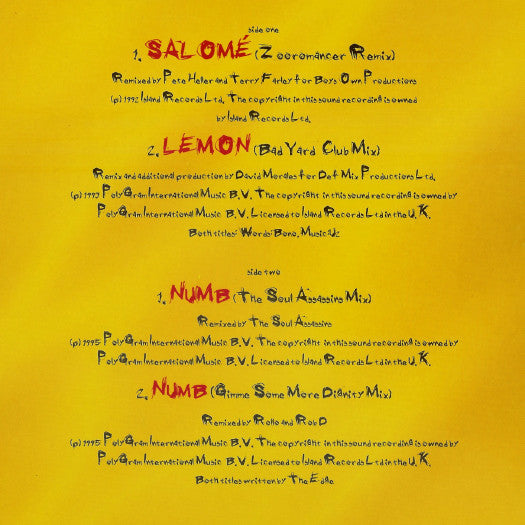 side one
1. SALOMÉ (Zooromancer Remix)
Remixed by Pete Heller and Terry Farley for Boys Own Productions
(p) 1992 Island Records Ltd. The copyright in this sound recording is owned
by Island Records Ltd.
2. LEMON (Bad Yard Club Mix)
Remix and additional production by David Morales for Def Mix Productions Ltd.
(p) 1993 PolyGram International Music B.V. The copyright in this sound recording is owned by
PolyGram International Music B.V. Licensed to Island Records Ltd in the U.K.
Both titles: Words: Bono, Music: U2
side two
1. NUMB (The Soul Assassins Mix)
Remixed by The Soul Assassins
(p) 1995 PolyGram International Music B.V. The copyright in this sound recording is owned by
PolyGram International Music B.V. Licensed to Island Records Ltd in the U.K.
2. NUMB (Gimme Some More Dignity Mix)
Remixed by Rollo and Rob D
(p) 1995 PolyGram International Music B.V. The copyright in this sound recording is owned by
PolyGram International Music B.V. Licensed to Island Records Ltd in the U.K.
Both titles written by The Edge